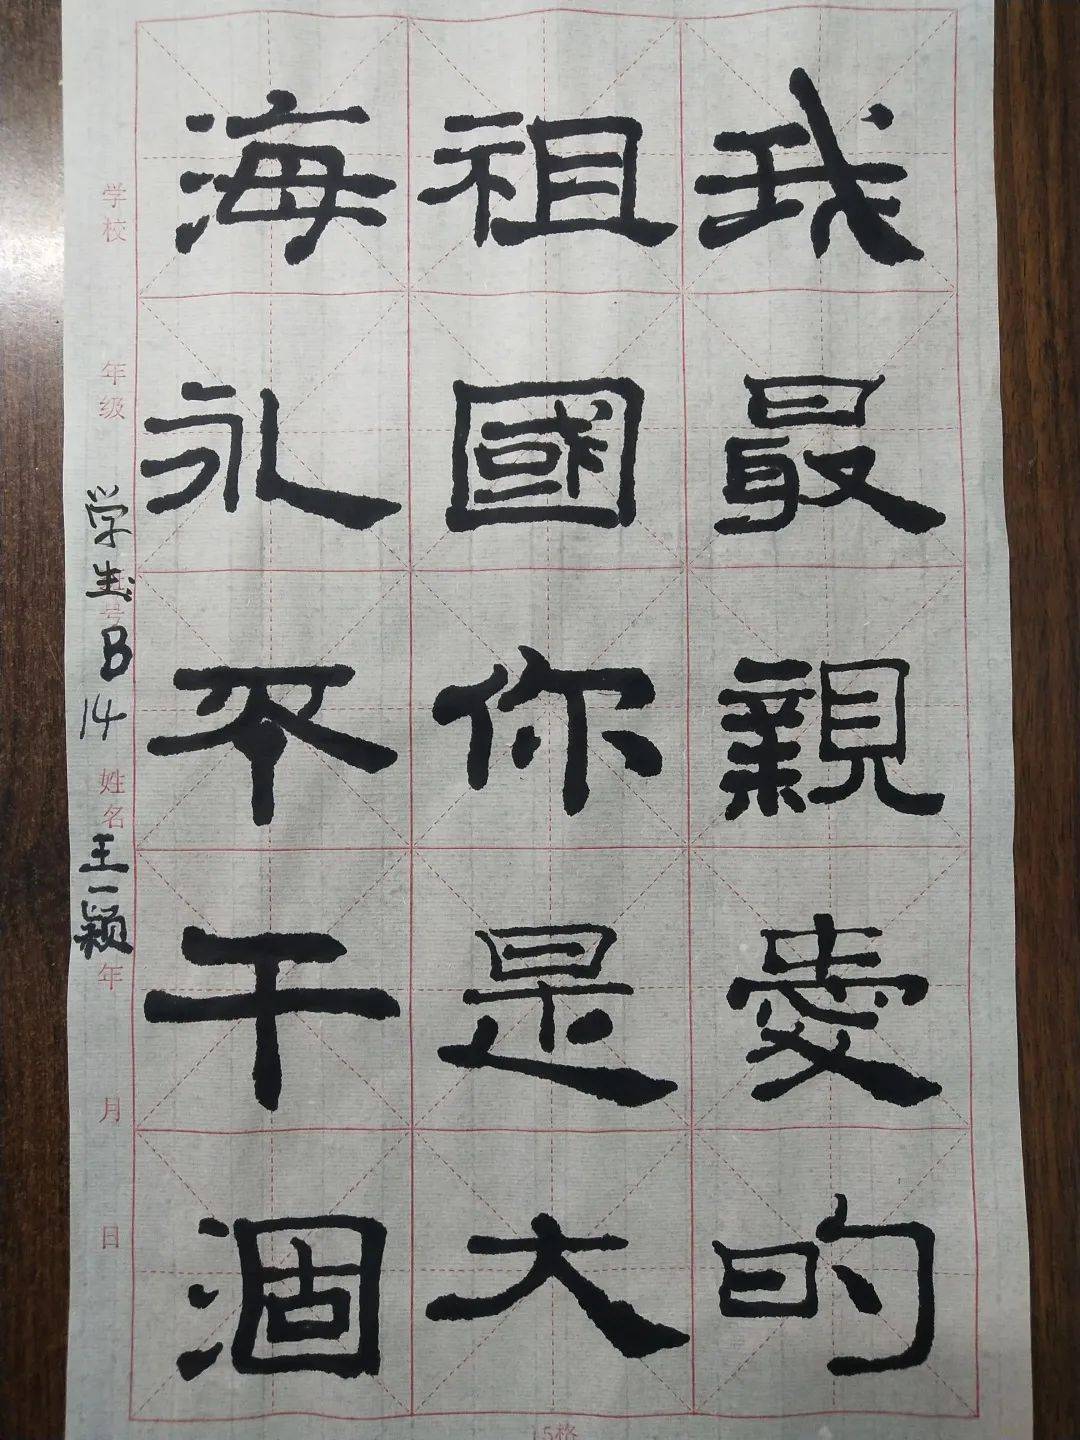 我最親愛的
祖國你是大
海永不干涸
学校
年级
学生B14
姓名
王一颖
年
月
日
15格